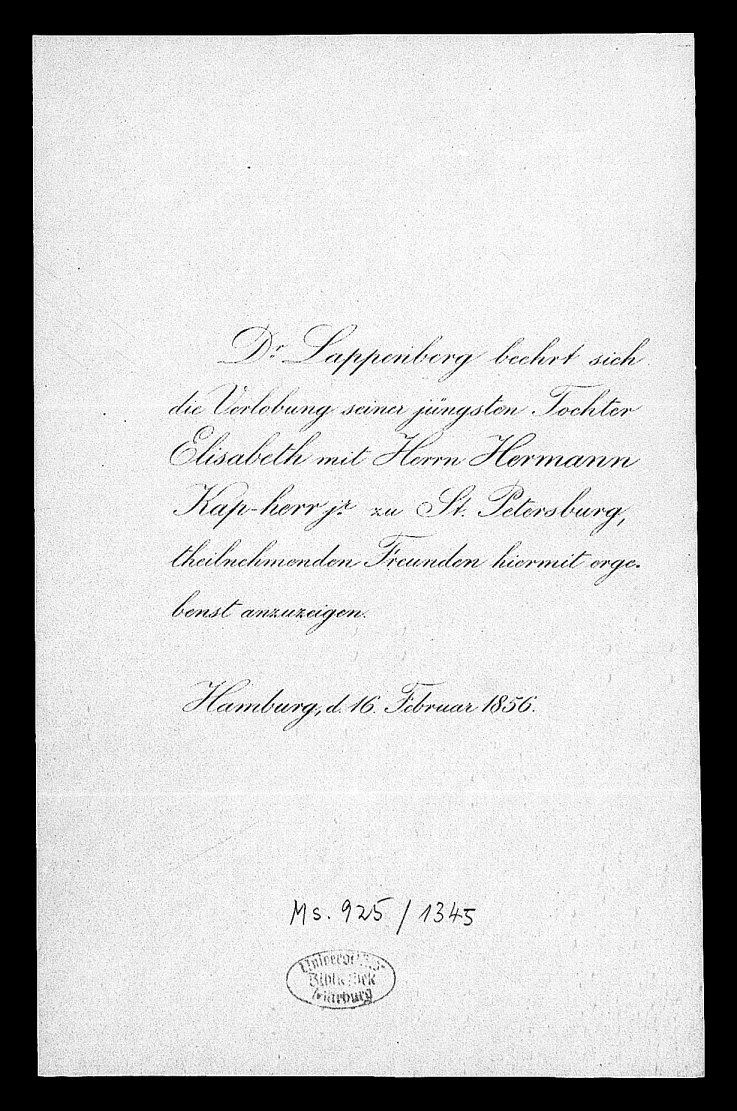 Dr. Lappenberg beehrt sich
die Verlobung seiner jüngsten Tochter
Elisabeth mit Herrn Hermann
Kap-herr jr. zu St. Petersburg,
theilnehmenden Freunden hiermit erge-
benst anzuzeigen.
Hamburg, d. 16. Februar 1856.
Ms. 925 / 1345
Universitäts-
Bibliothek
Marburg